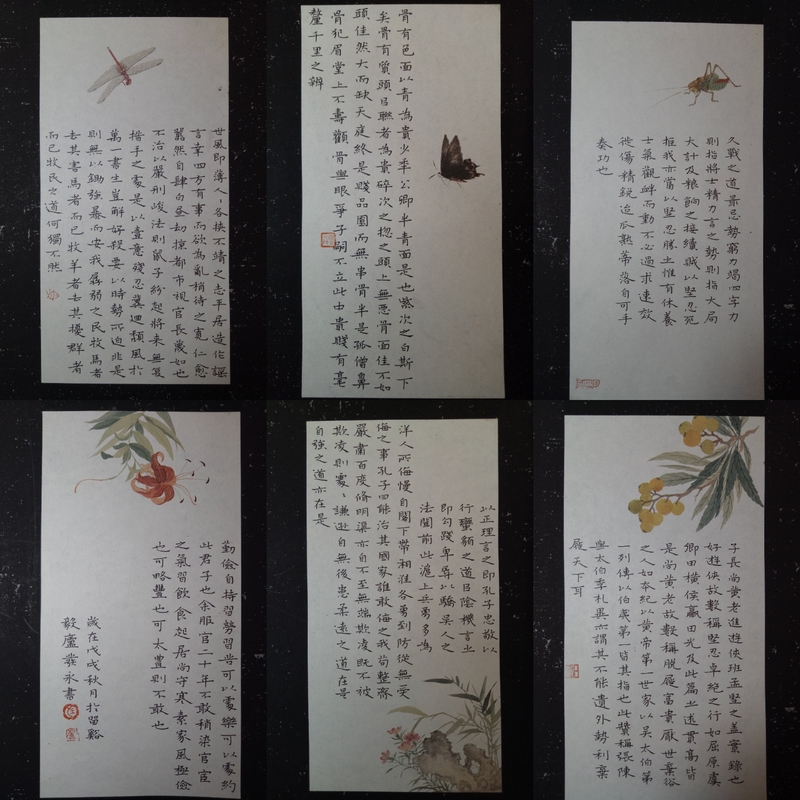 久戰之道最忌勢窮力竭四字力
則指將士精力言之勢則指大局
大計及粮餉之接續賊以堅忍死
拒我亦當以堅忍勝土惟有休養
士氣觀衅而動不必過求速效
徙傷精銳迨瓜熟蒂落自可手
奏功也
骨有色面以青為貴少年公卿半青面是也紫次之白斯下
矣骨有質頭㠯聯者為貴碎次之揔之頭上無惡骨面佳不如
頭佳然大而缺天庭終是賤品圓而無串骨半是孤僧鼻
骨犯眉堂上不壽顴骨與眼爭子嗣不立此中貴賤有毫
釐千里之辨
世風即薄人〻各挾不靖之志平居造作謡
言幸四方有事而欲為亂稍待之寬仁愈
囂然自肆白晝劫掠都市視官長蔑如也
不治以嚴刑峻法則鼠子紛起將来無復
措手之處是以壹意殘忍冀迴頽風於
萬一書生豈解好殺要以時勢所迫非是
則無以鋤強暴而安我孱弱之民牧馬者
去其害馬者而已牧羊者去其擾群者
而已牧民之道何獨不然
子長尚黄老進遊俠班孟堅之盖實録也
好遊俠故數稱堅忍卓絶之行如屈原虞
卿田横侯嬴田光及此篇之述貫高皆
是尚黄老故數稱脱屣富貴厭世棄俗
之人如本紀以黄帝第一世家以吴太伯第
一列傳以伯夷第一皆其指也此贊稱張陳
與太伯季札異亦謂其不能遺外勢利棄
屣天下耳
以正理言之即孔子忠敬以
行蠻貊之道㠯陰機言之
即勾踐卑辱以驕吴人之
法聞前此滬上兵勇多為
洋人所侮慢自閣下帶湘淮各勇到防從無受
侮之事孔子曰能治其國家誰敢侮之我茍整齊
嚴肅百度修明渠亦自不至無端欺凌既不被
欺凌則處〻謙遜自無後患柔遠之道在是
自強之道亦在是
勤儉自持習勞習苦可以處樂可以處約
此君子也余服官二十年不敢稍染官宦
之氣習飲食起居尚守寒素家風極儉
也可略豐也可太豊則不敢也
歲在戊戌秋月於留谿
毅廬業永書